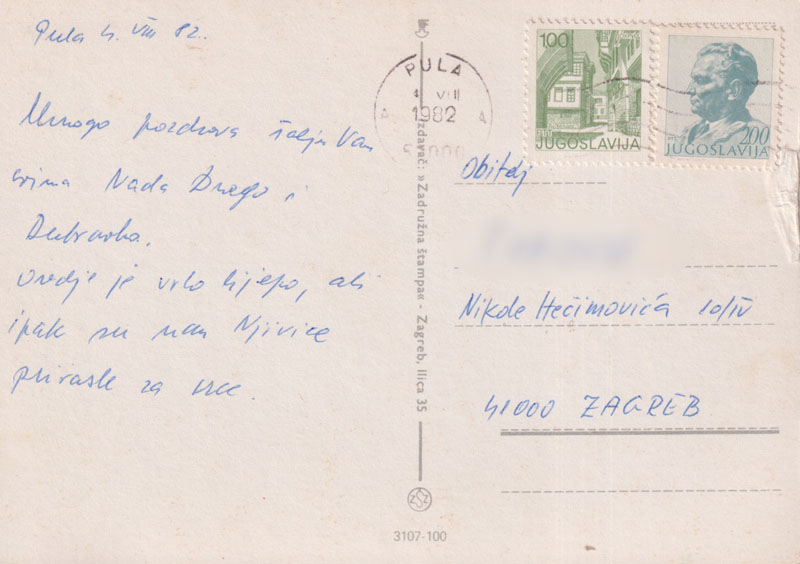 Pula 4. VIII 82.
Mnogo pozdrava šalju Vam
svima Nada Drago i
Dubravka.
Ovdje je vrlo lijepo, ali
ipak su nam Njivice
prirasle za srce.
Izdavač: »Zadružna štampa« - Zagreb, Ilica 35
ZŠZ
3107-100
PULA
4 VIII
1982
A A
100
JUGOSLAVIJA
200
JUGOSLAVIJA
Obitelj
Nikole Hećimovića 10/IV
41000 ZAGREB